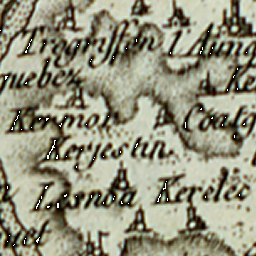 Trogriffen l'Aun
quebez Ke
Kermor Coatq
Kerjestin
Lesmoa Kereles
uet